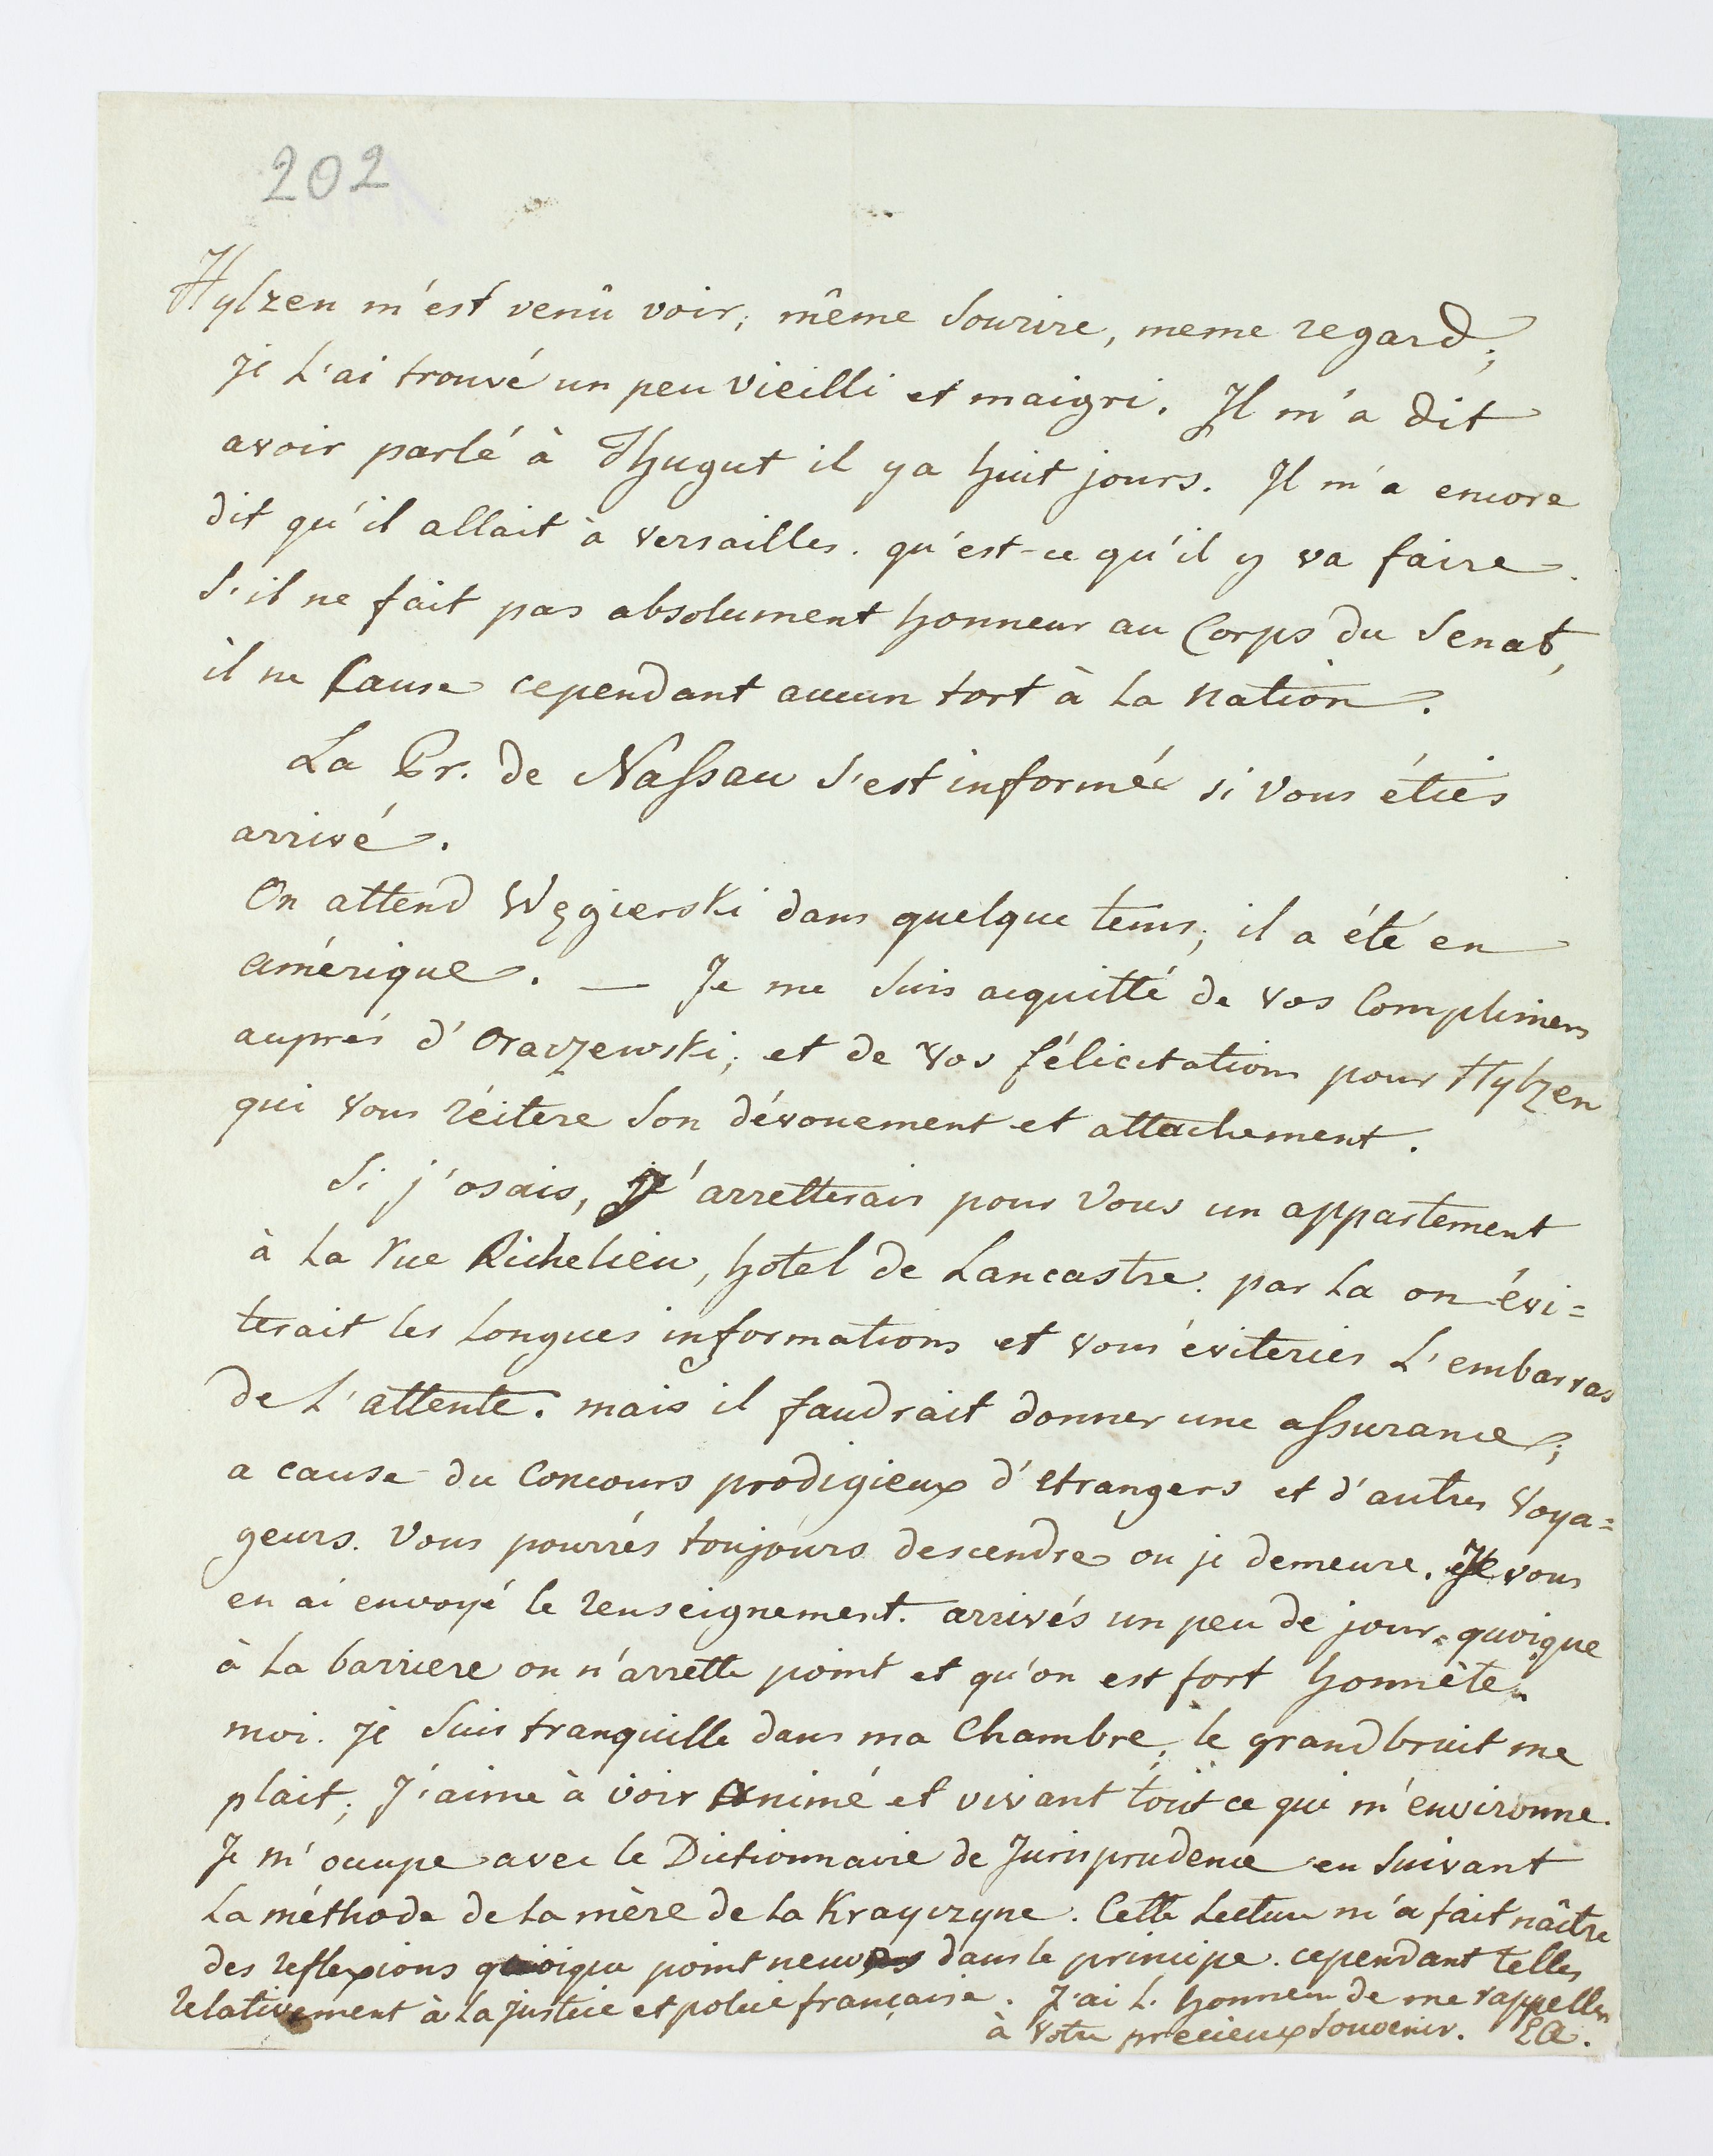 202
Hylzen m'est venû voir; même Sourire, meme regard;
je L'ai trouvé un peu vieilli et maigri. Il m'a dit
avoir parlé à Thugut il y a huit jours. Il m'a encore
dit qu'il allait à versailles. qu'est-ce qu'il y va faire.
S'il ne fait pas absolument honneur au Corps du Senat,
il ne Cause cependant aucun tort à La Nation.
La Pr. de Nassau S'est informée si vous étiés
arrivé.
On attend Węgierski dans quelque tems; il a été en
amérique. — Je me Suis acquitté de vos Complimens
auprés d'Oraczewski; et de vos félicitations pour Hylzen
qui vous réitere Son dévouement et attachement.
Si j'osais, j'arretterais pour vous un appartement
à La rue Richelieu, hotel de Lancastre. par La on évi=
terait les Longues informations et vous éviteriés L'embarras
de L'attente. mais il faudrait donner une assurance;
a cause du Concours prodigieux d'etrangers et d'autres voya=
geurs. Vous pourrés toujours descendre ou je demeure. Je vous
en ai envoyé le renseignement. arrivés un peu de jour. quoique
à La barriere on n'arrette point et qu'on est fort honnête.
moi. je Suis tranquille dans ma Chambre, le grand bruit me
plait; J'aime à voir animé et vivant tout ce qui m'environne.
Je m'occupe avec le Dictionnaire de Jurisprudence en Suivant
La méthode de La mère de La Krayczyne. Cette Lecture m'a fait naître
des reflexions quoique point neuves dans le principe. cependant telles
relativement à La justice et police française. J'ai L'honneur de me rappeller
à votre precieux Souvenir. EA.